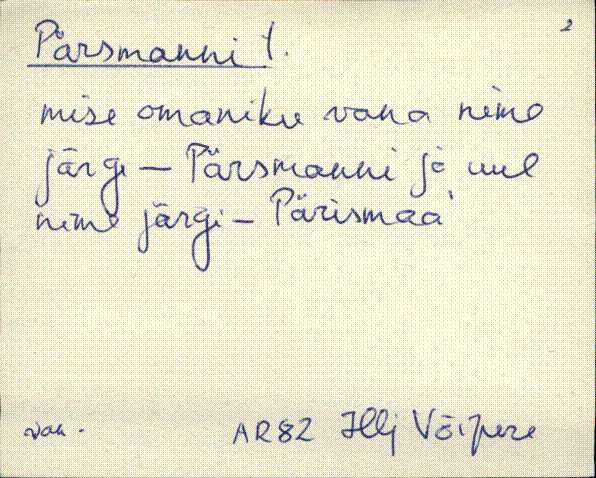 Pärsmanni t. 2
mise omaniku vana nime
järgi – Pärsmanni ja uue
nime järgi – Pärismaa
van. AR82 Illj Võipere